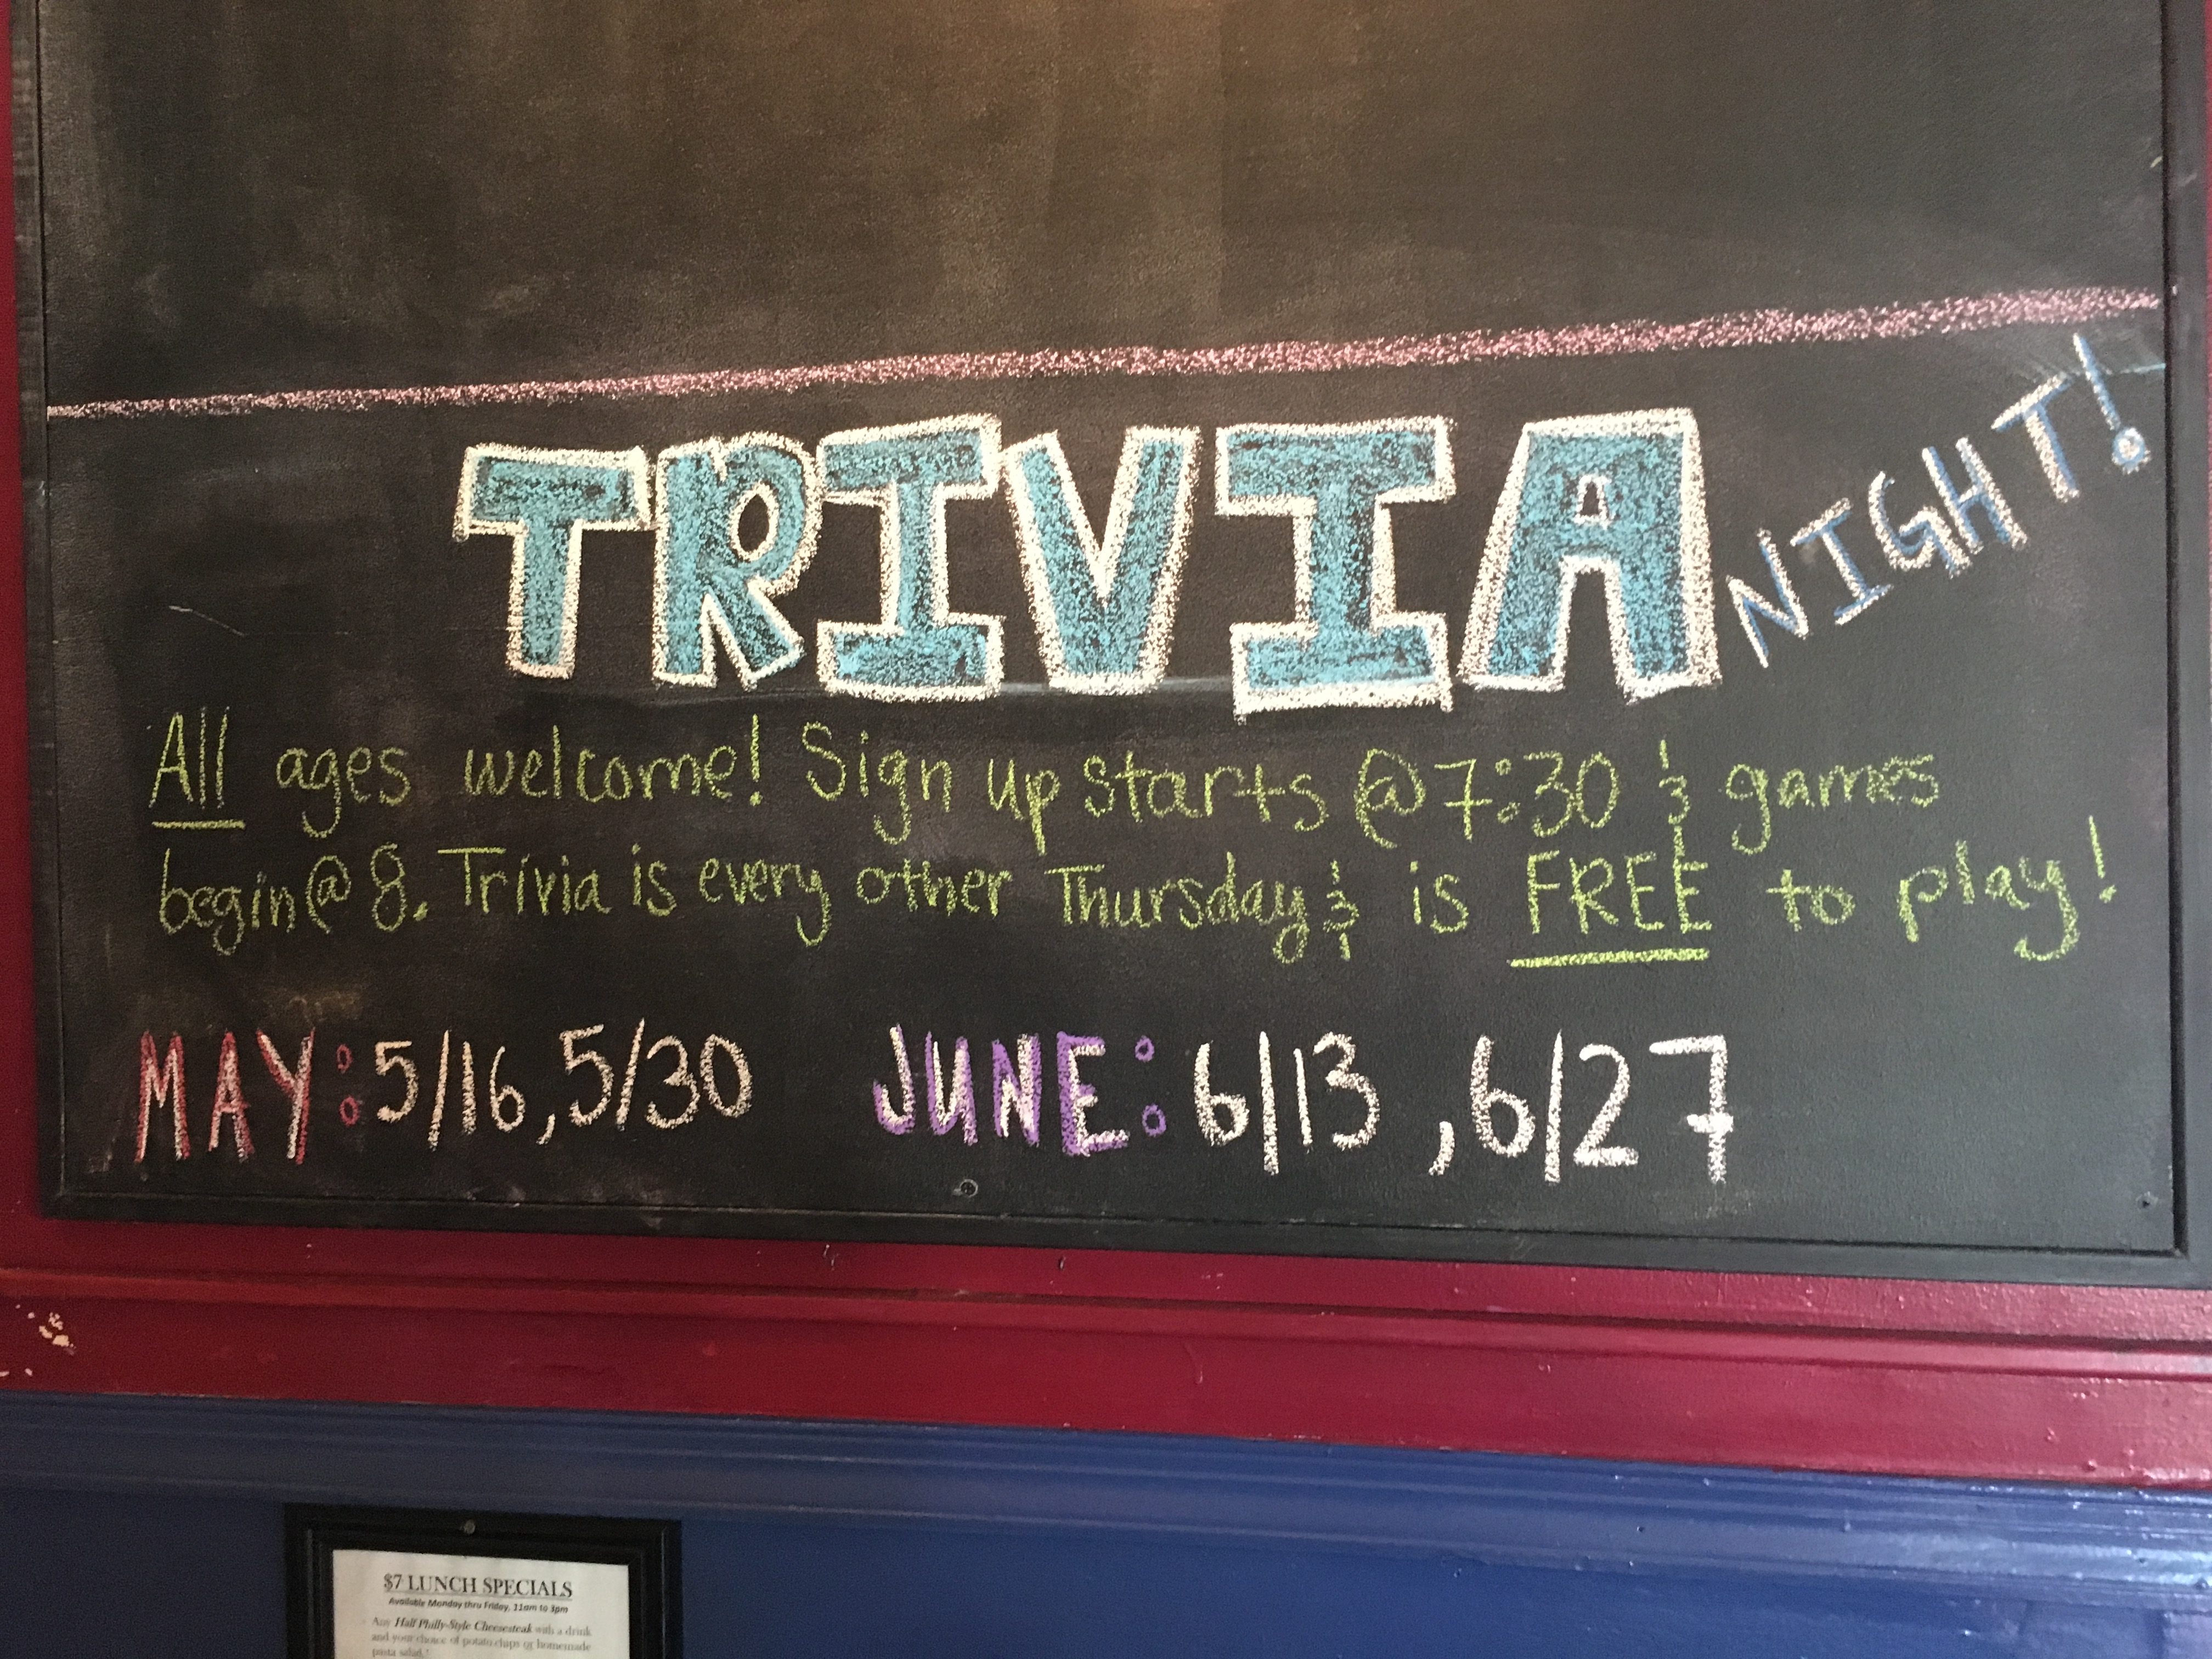 TRIVIA NIGHT!
All ages welcome! Sign up starts @ 7:30 & games
begin @ 8. Trivia is every other Thursday & is FREE to play!
MAY: 5/16, 5/30 JUNE: 6/13, 6/27
$7 LUNCH SPECIALS
Available Monday thru Friday, 11am to 3pm
Any Half Philly-Style Cheesesteak with a drink
and your choice of potato chips or homemade
pasta salad.